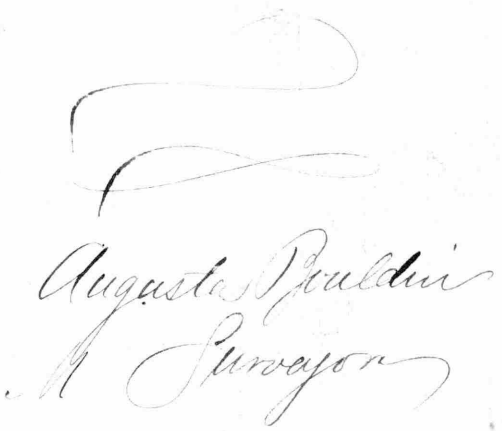 Augustas Bouldin
Surveyor